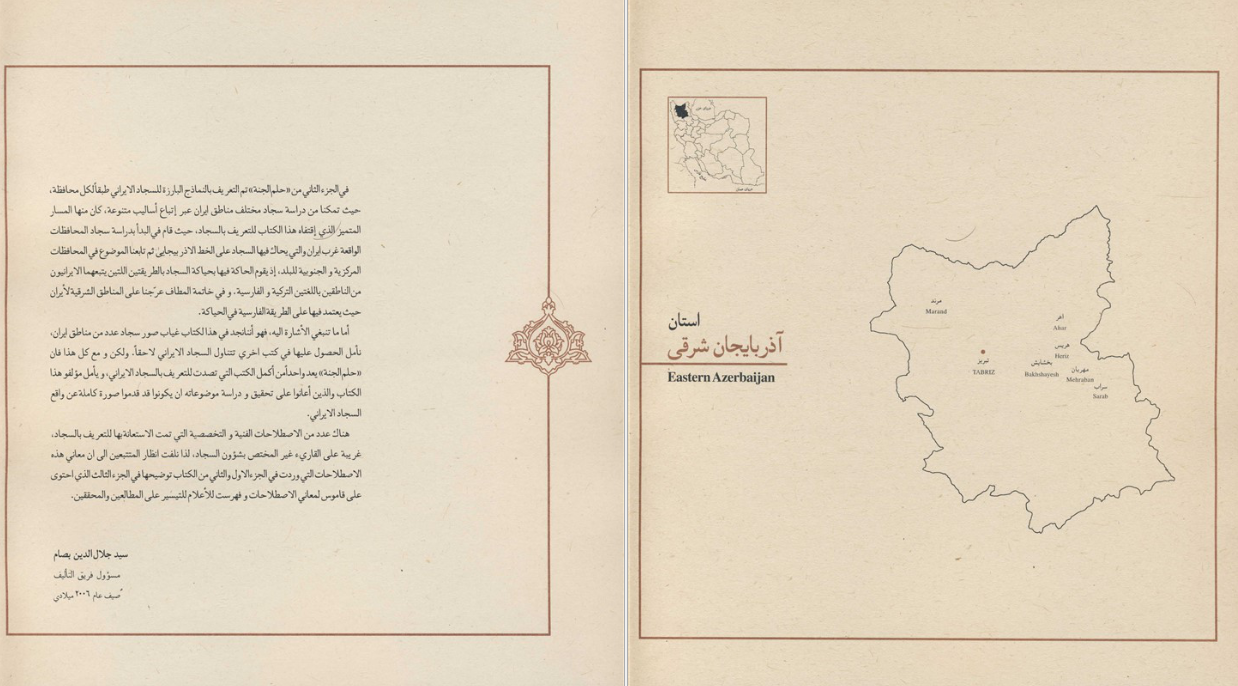 في الجزء الثاني من «حلم الجنة» تم التعريف بالنماذج البارزة للسجاد الايراني طبقاً لكل محافظة،
حيث تمكنا من دراسة سجاد مختلف مناطق ايران عبر إتباع أساليب متنوعة، كان منها المسار
المتميز الذي إقتفاه هذا الكتاب للتعريف بالسجاد، حيث قام في البدأ بدراسة سجاد المحافظات
الواقعة غرب ايران والتي يحاك فيها السجاد على الخط الاذربيجاني ثم تابعنا الموضوع في المحافظات
المركزية و الجنوبية للبلد، إذ يقوم الحاكة فيها بحياكة السجاد بالطريقتين اللتين يتبعهما الايرانيون
من الناطقين باللغتين التركية و الفارسية. و في خاتمة المطاف عرّجنا على المناطق الشرقية لأيران
حيث يعتمد فيها على الطريقة الفارسية في الحياكة.
أما ما تنبغي الأشارة اليه، فهو أننا نجد في هذا الكتاب غياب صور سجاد عدد من مناطق ايران،
نأمل الحصول عليها في كتب اخري تتناول السجاد الايراني لاحقاً. ولكن و مع كل هذا فان
«حلم الجنة» يعد واحداً من أكمل الكتب التي تصدت للتعريف بالسجاد الايراني، و يأمل مؤلفو هذا
الكتاب والذين أعانوا على تحقيق و دراسة موضوعاته ان يكونوا قد قدموا صورة كاملة عن واقع
السجاد الايراني.
هناك عدد من الاصطلاحات الفنية و التخصصية التي تمت الاستعانة بها للتعريف بالسجاد،
غريبة على القاريء غير المختص بشؤون السجاد، لذا نلفت انظار المتتبعين الى ان معاني هذه
الاصطلاحات التي وردت في الجزء الاول والثاني من الكتاب توضيحها في الجزء الثالث الذي احتوى
على قاموس لمعاني الاصطلاحات و فهرست للأعلام للتيسير على المطالعين والمحققين.
سيد جلال الدين بصام
مسؤول فريق التأليف
صيف عام ٢٠٠٦ ميلادي
استان
آذربایجان شرقی
Eastern Azerbaijan
مرند
Marand
اهر
Ahar
هریس
Heriz
تبریز
TABRIZ
بخشایش
Bakhshayesh
مهربان
Mehraban
سراب
Sarab